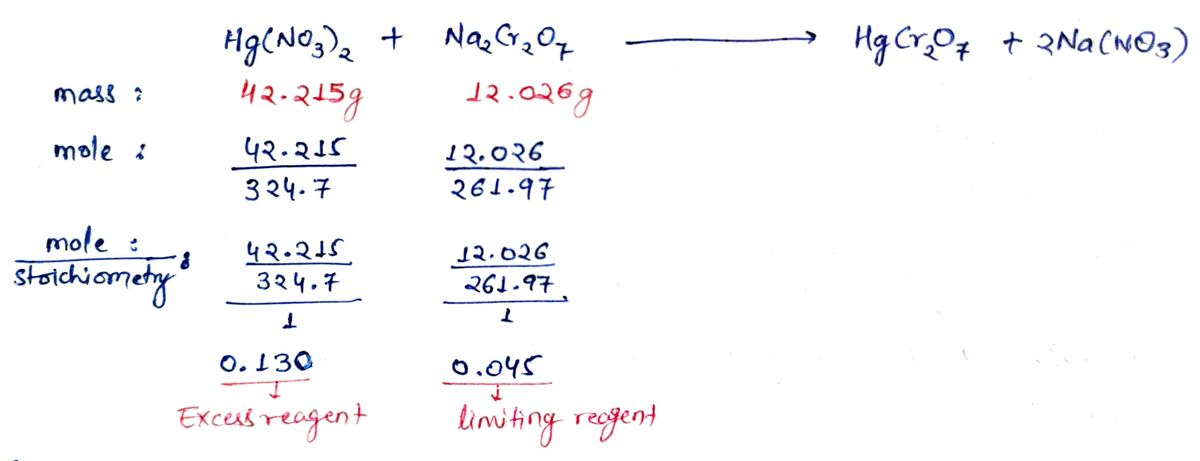 Hg(NO₃)₂ + Na₂Cr₂O₇ ⟶ HgCr₂O₇ + 2Na(NO₃)
mass : 42.215g 12.026g
mole : 42.215/324.7 12.026/261.97
mole :/stoichiometry : (42.215/324.7)/1 (12.026/261.97)/1
0.130 0.045
↓ ↓
Excess reagent limiting reagent